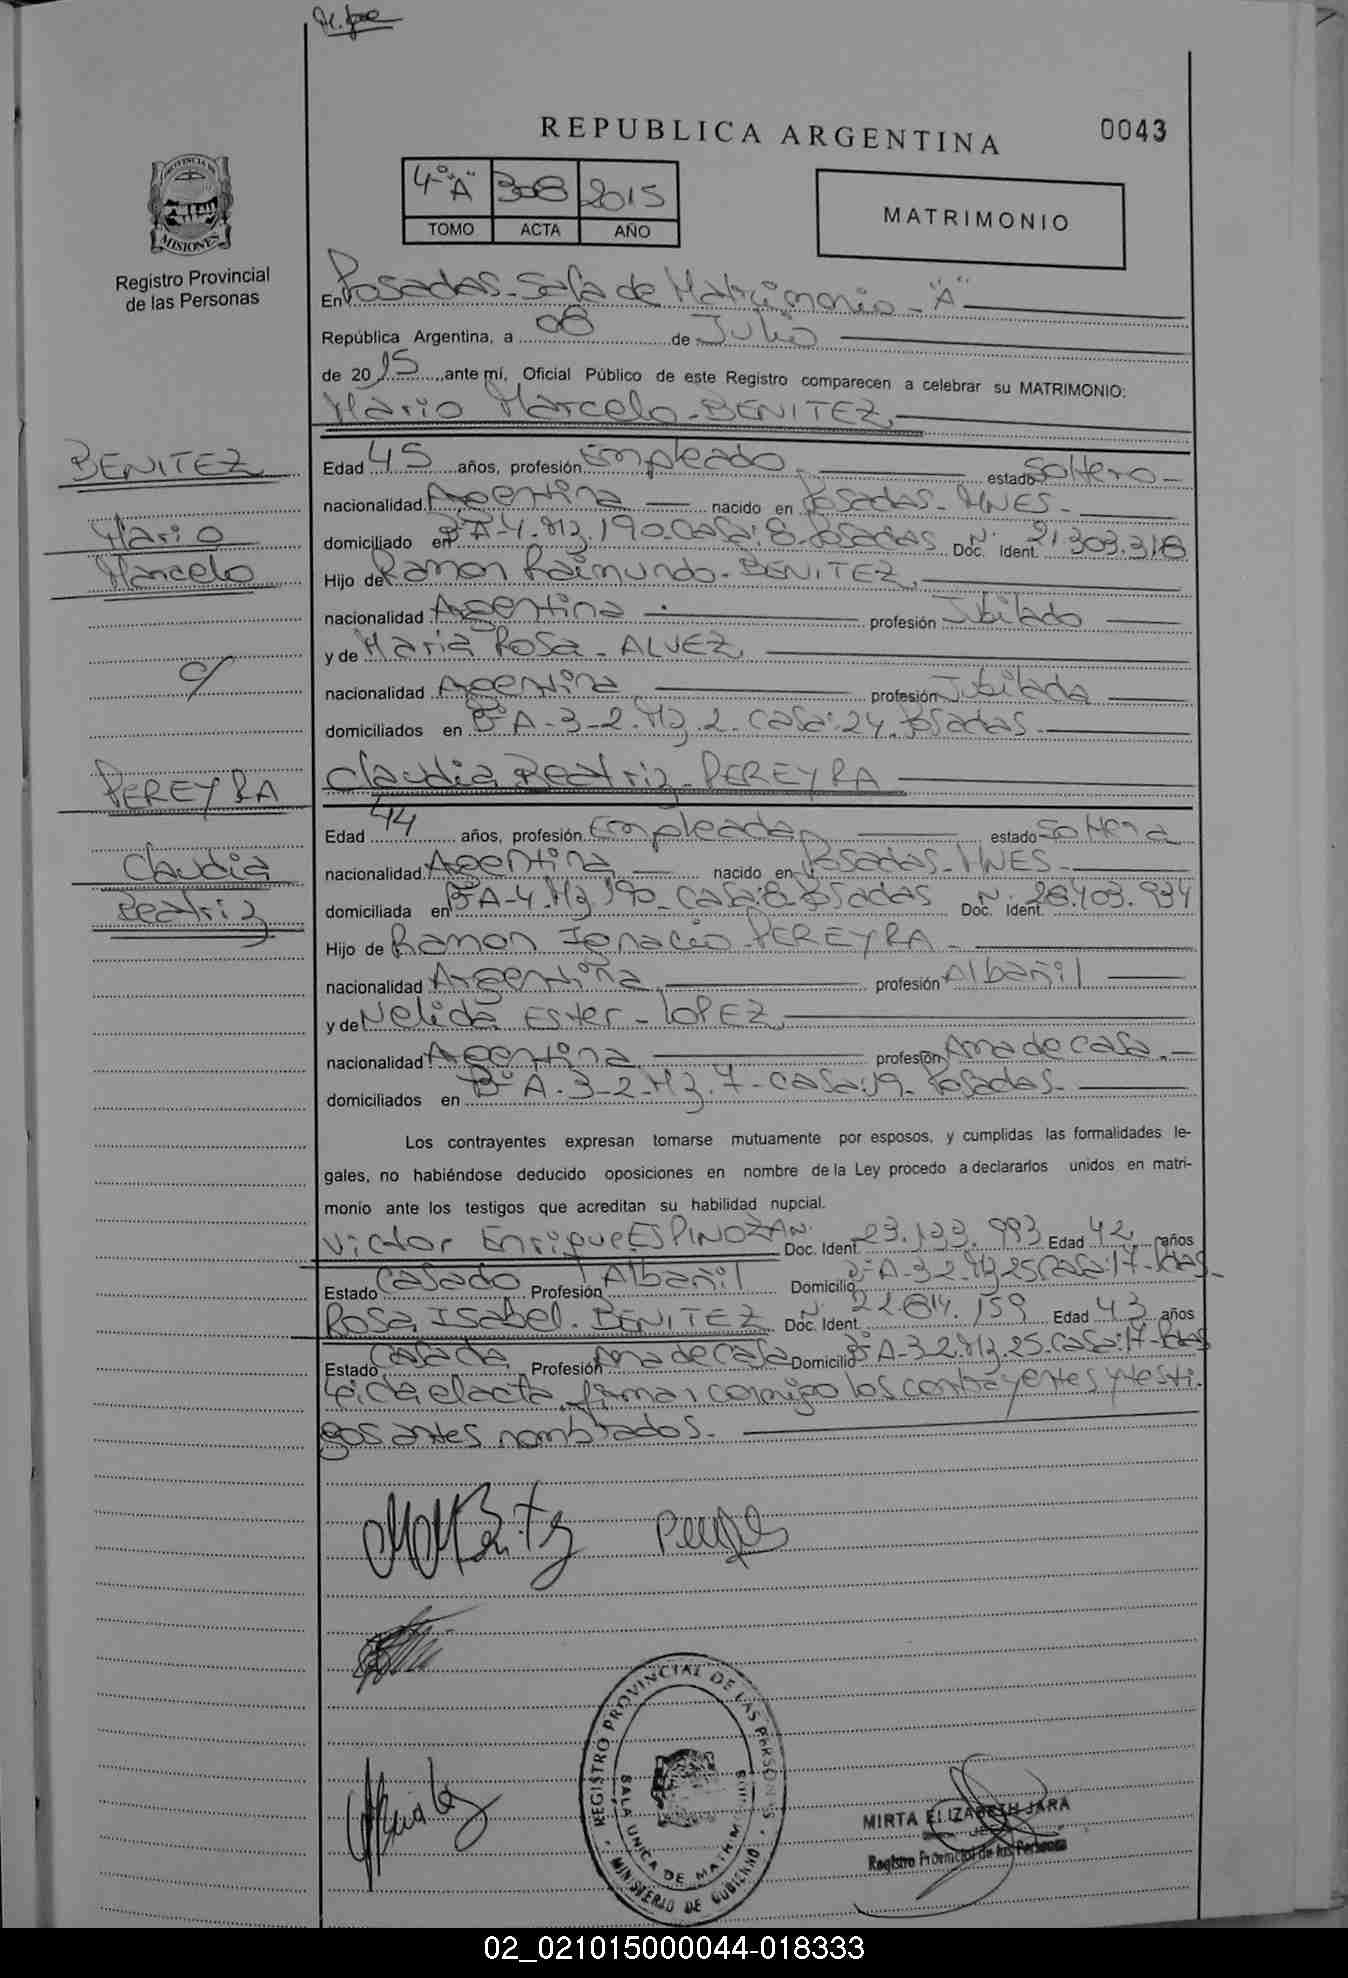 REPUBLICA ARGENTINA
0043
4º "A" 308 2015
TOMO ACTA AÑO
MATRIMONIO
PROVINCIA DE
MISIONES
Registro Provincial
de las Personas
En Posadas - Sala de Matrimonio - "A"
República Argentina, a 08 de Julio
de 2015, ante mí, Oficial Público de este Registro comparecen a celebrar su MATRIMONIO:
Mario Marcelo - BENITEZ
BENITEZ
Mario
Marcelo
c/
PEREYRA
Claudia
Beatriz
Edad 45 años, profesión Empleado estado Soltero
nacionalidad Argentina nacido en Posadas - MNES -
domiciliado en Bº A-4. Mz. 190. Casa: 8. Posadas Doc. Ident. Nº 21.303.318
Hijo de Ramon Raimundo - BENITEZ
nacionalidad Argentina profesión Jubilado
y de Maria Rosa - ALVEZ
nacionalidad Argentina profesión Jubilada
domiciliados en Bº A-3-2. Mz. 2. Casa: 24. Posadas
Claudia Beatriz - PEREYRA
Edad 44 años, profesión Empleada estado Soltera
nacionalidad Argentina nacido en Posadas - MNES -
domiciliada en Bº A-4. Mz. 190. Casa: 8. Posadas Doc. Ident. Nº 28.403.934
Hijo de Ramon Ignacio - PEREYRA -
nacionalidad Argentina profesión Albañil
y de Nelida Ester - LOPEZ
nacionalidad Argentina profesión Ama de casa
domiciliados en Bº A-3-2. Mz. 7 - Casa: 19 - Posadas -
Los contrayentes expresan tomarse mutuamente por esposos, y cumplidas las formalidades le-
gales, no habiéndose deducido oposiciones en nombre de la Ley procedo a declararlos unidos en matri-
monio ante los testigos que acreditan su habilidad nupcial.
Victor Enrique ESPINOZA Nº Doc. Ident. 23.133.993 Edad 42 años
Estado Casado Profesión Albañil Domicilio Bº A-3 2. Mz 25 Casa: 17 - Pdas -
Rosa Isabel - BENITEZ Nº Doc. Ident. 22.814.159 Edad 43 años
Estado Casada Profesión Ama de casa Domicilio Bº A-3 2. Mz. 25. Casa: 17 - Pdas
Leida el acta, firman conmigo los contrayentes y testi-
gos antes nombrados. -
REGISTRO PROVINCIAL DE LAS PERSONAS
SALA UNICA DE MATRIM
MINISTERIO DE GOBIERNO
MIRTA ELIZABETH JARA
Registro Provincial de las Personas
02_021015000044-018333